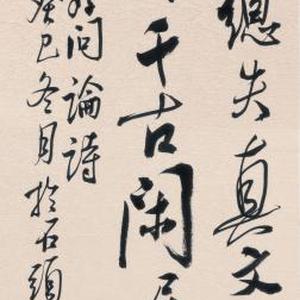 總失真文
千古閑
好問論詩
癸巳冬月於石頭